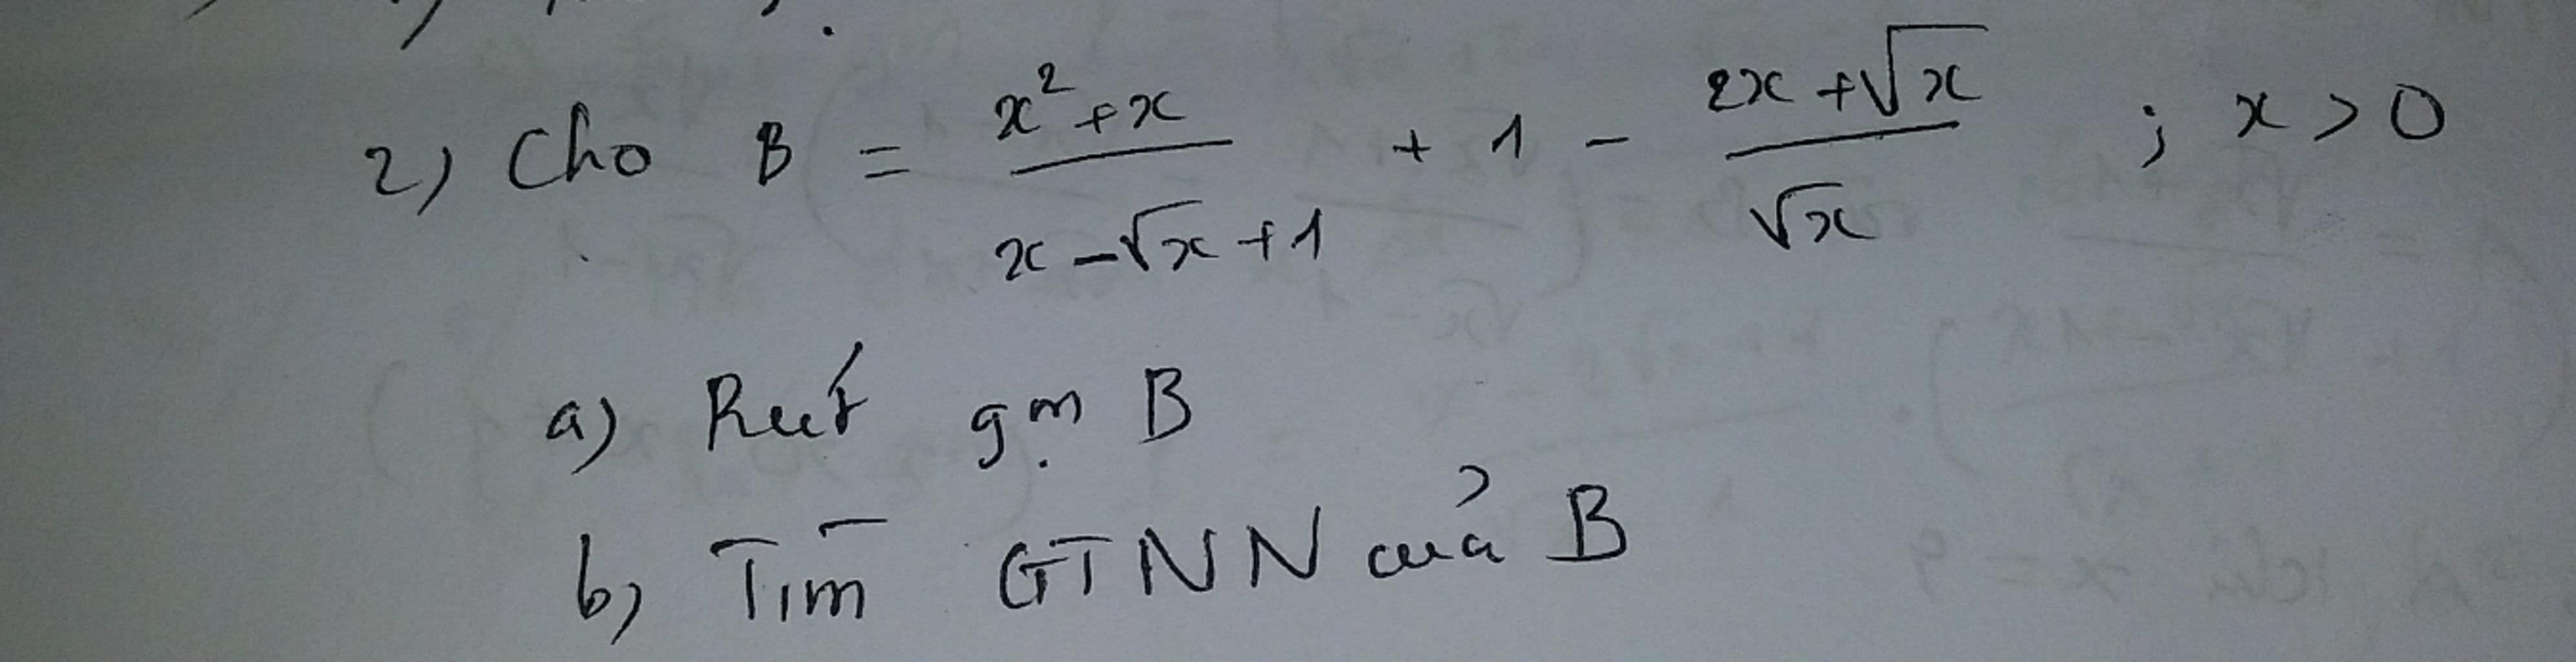 2) Cho B = \frac{x^2+x}{x-\sqrt{x}+1} + 1 - \frac{2x+\sqrt{x}}{\sqrt{x}} ; x > 0
a) Rút gọn B
b) Tìm GTNN của B